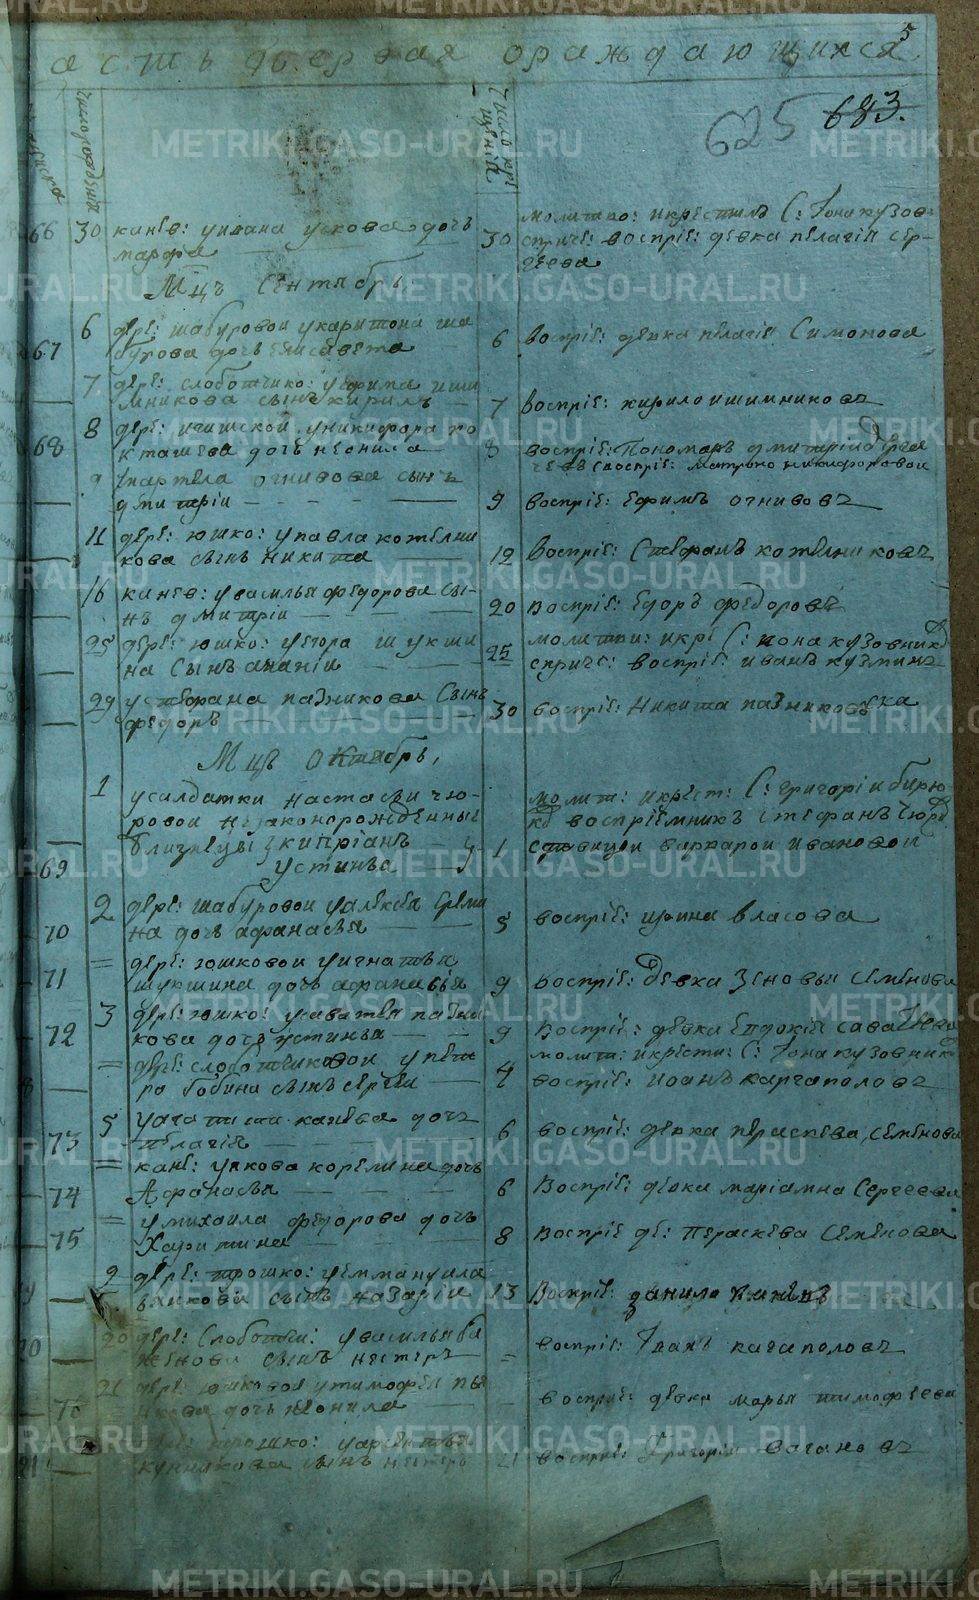 асть первая ораждающихся
5
625 683.
число рождения
число крещения
66 30 канев: уивана ускова дочь
марфа
молитво: икрестил С: Iона кузов
30 спричс: воспріе: девка пелагія сер-
геева
Мцъ Сентябрь
67 6 дере: шабуровои ухаритона ша
бурова дочь елисавета
6 воспріе: девка пелагія Симонова
7 дере: слоботчико: уефима иши
мникова сынъ кирилъ
7 воспріе: кирило ишимниковъ
68 8 дере: уникифора
дочь неонила
8 воспріе: Пономарь дмитрій
воспріе: Матрона никифорова
9 укарпела огнивова сынъ
дмитрій
9 воспріе: Ефимъ огнивовъ
11 дере: юшко: упавла котелни
кова сынъ никита
12 воспріе: Стефанъ котелниковъ
16 канев: увасилья федорова сы-
нъ дмитрій
20 воспріе: Егоръ федоровъ
25 дере: юшко: уегора шукши
на сынъ ананіи
25 молитви: икре С: иона кузовник
спричс: воспріе: иванъ кузминъ
29 устефана пазникова сынъ
федоръ
30 воспріе: Никита пазниковъ
Мцъ октябрь,
69 1 усалдатки настасьи чю-
ровои незаконорожденные
близнецы кипріанъ
Устинья
1 молит: икрест: С: григоріи бирю
ко воспріемникъ стефанъ
вдовицои варварои Ивановои
70 2 дере: шабуровои уалексея ереми
на дочь афанасья
5 воспріе: ирина власова
71 = дере: юшковои уигнатья
шукшина дочь афанасья
9 воспріе: девка Зеновья семенова
72 3 дере: юшко: усаватея пазни
кова дочь устинья
9 воспріе: девка Евдокія саватеева
= дере: слоботчиковои упет
ра бабина сынъ сергеи
4 молит: икрести: С: Iона кузовник
воспріе: иоанъ каргаполовъ
73 5 канева дочь
пелагія
6 воспріе: девка пераскева, семенова
74 = кане: уякова корелина дочь
Афанасья
6 воспріе: девка маріамна Сергеева
75 = умихаила федорова дочь
Харитина
8 воспріе де: Пераскева Семенова
9 дере: трошко: уеммануила
быкова сынъ назарій
13 воспріе: данило
20 20 дере: слоботчи: увасилья ба
женова сынъ нестеръ
= воспріе: Iванъ кагаполовъ
76 21 дере: юшковои утимофея пы
кова дочь неонила
воспріе: девка марья тимофеева
21 дере: трошко:
сынъ нестеръ
21 воспріе: Григорій вагановъ
METRIKI.GASO-URAL.RU